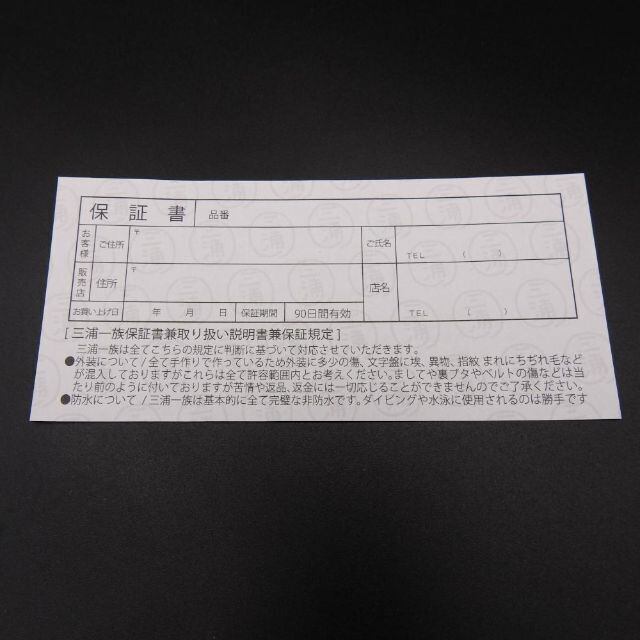 保証書 品番
お客様 ご住所 〒 ご氏名 TEL ( )
販売店 住所 〒 店名 TEL ( )
お買い上げ日 年 月 日 保証期間 90日間有効
[三浦一族保証書兼取り扱い説明書兼保証規定]
三浦一族は全てこちらの規定に判断に基づいて対応させていただきます。
●外装について/全て手作りで作っているため外装に多少の傷、文字盤に埃、異物、指紋 まれにちぢれ毛など
が混入しておりますがこれらは全て許容範囲内とお考えください。ましてや裏ブタやベルトの傷などは当
たり前のように付いておりますが苦情や返品、返金には一切応じることができませんのでご了承ください。
●防水について/三浦一族は基本的に全て完璧な非防水です。ダイビングや水泳に使用されるのは勝手です
三浦